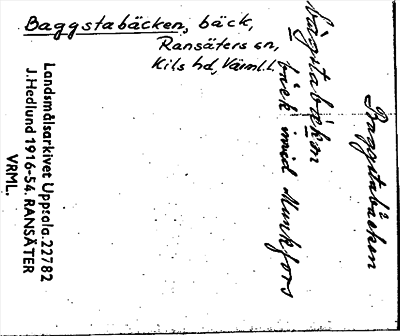 Baggstabäcken, bäck,
Ransäters sn,
Kils hd, Värml.l.
Baggstabäcken
bäck invid Munkfors
Landsmålsarkivet Uppsala. 22782
J. Hedlund 1916-54. RANSÄTER
VRML.